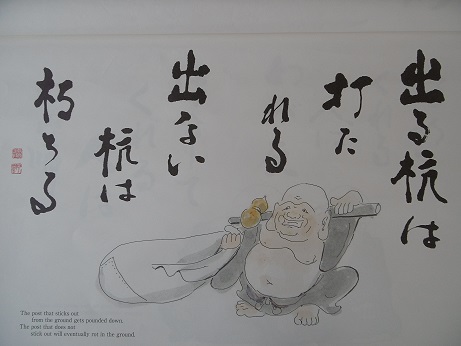 出る杭は
打た
れる
出ない
杭は
朽ちる
The post that sticks out
from the ground gets pounded down.
The post that does not
stick out will eventually rot in the ground.